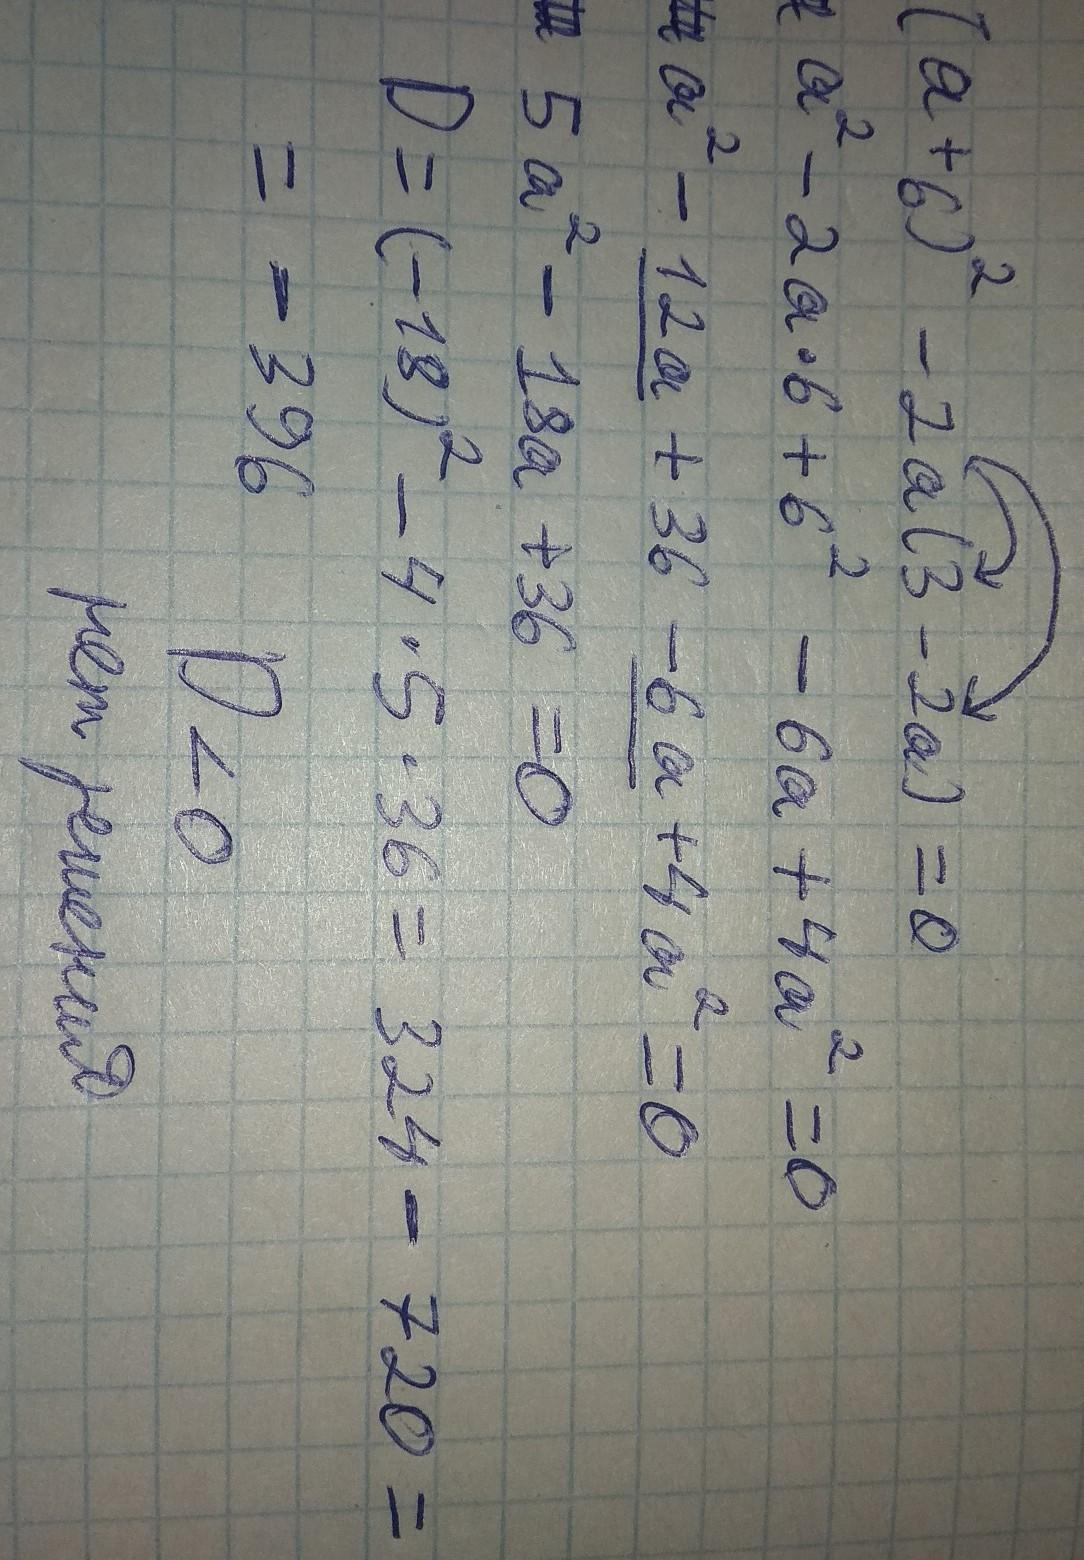 (a+6)² - 2a(3 - 2a) = 0
a² - 2a·6 + 6² - 6a + 4a² = 0
a² - 12a + 36 - 6a + 4a² = 0
5a² - 18a + 36 = 0
D = (-18)² - 4·5·36 = 324 - 720 =
= - 396
D < 0
нет решений